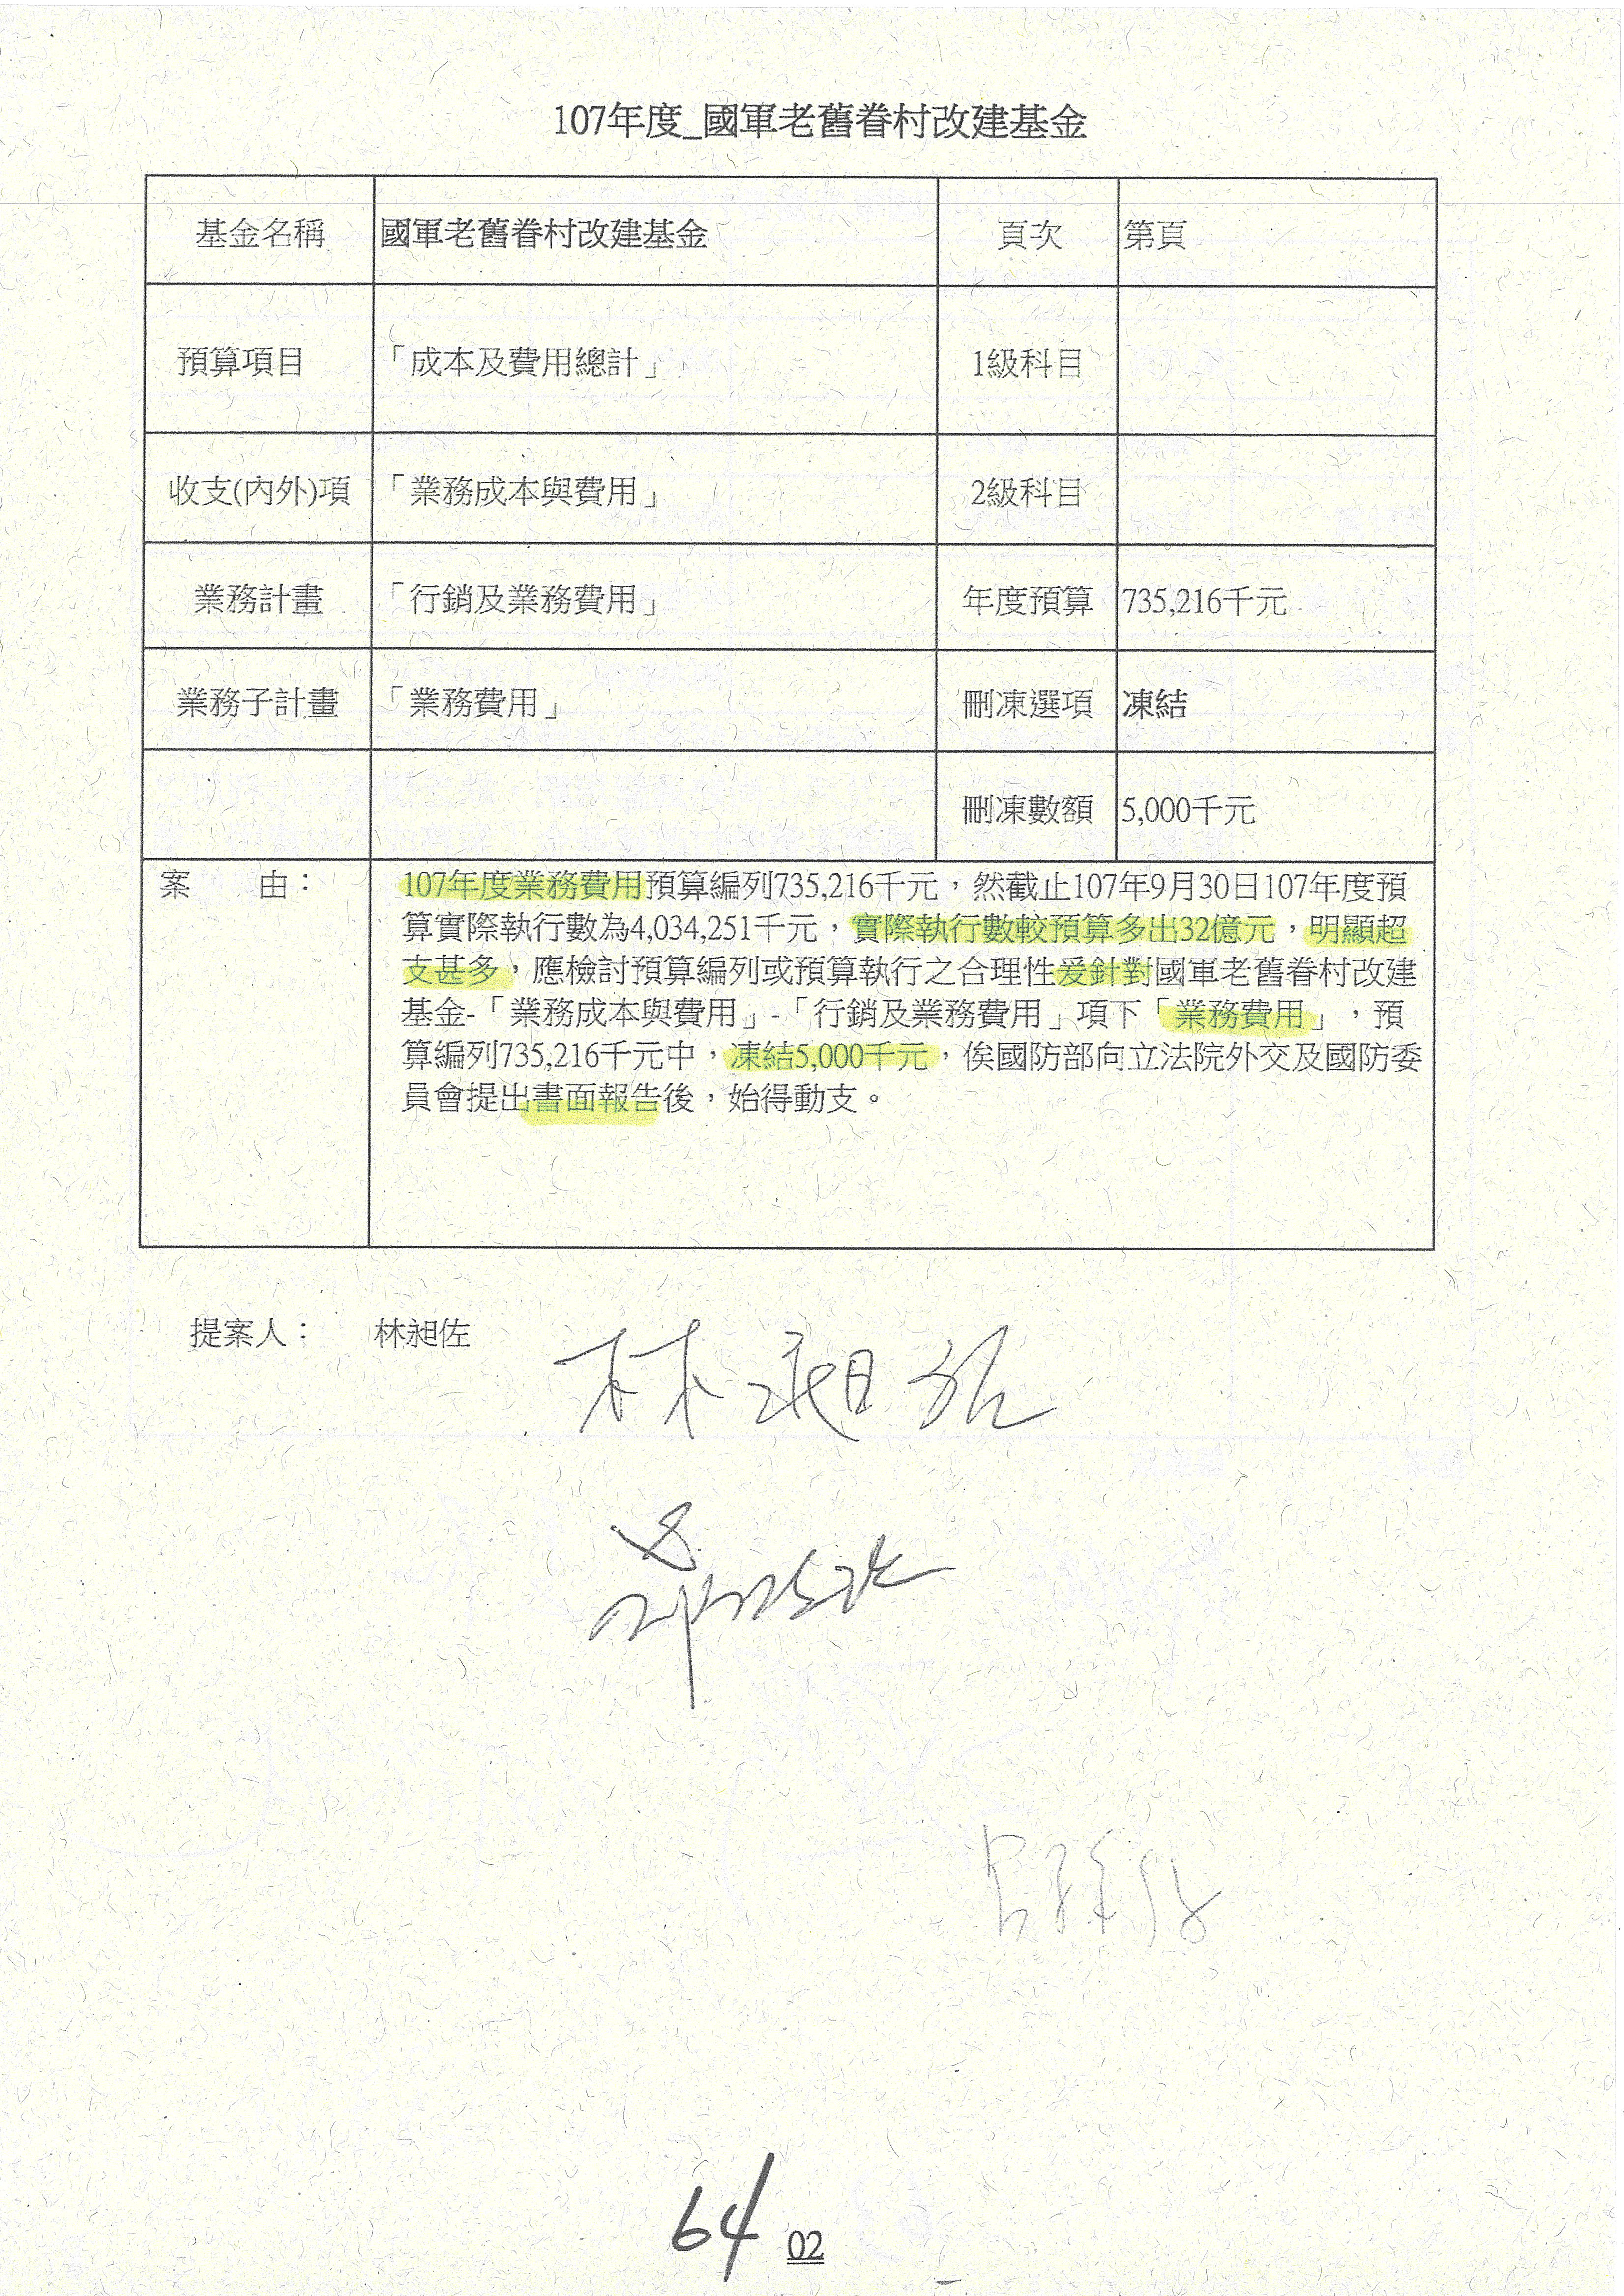 107年度_國軍老舊眷村改建基金
基金名稱 國軍老舊眷村改建基金 頁次 第頁
預算項目 「成本及費用總計」 1級科目
收支(內外)項 「業務成本與費用」 2級科目
業務計畫 「行銷及業務費用」 年度預算 735,216千元
業務子計畫 「業務費用」 刪凍選項 凍結
刪凍數額 5,000千元
案 由： 107年度業務費用預算編列735,216千元，然截止107年9月30日107年度預
算實際執行數為4,034,251千元，實際執行數較預算多出32億元，明顯超
支甚多，應檢討預算編列或預算執行之合理性爰針對國軍老舊眷村改建
基金-「業務成本與費用」-「行銷及業務費用」項下「業務費用」，預
算編列735,216千元中，凍結5,000千元，俟國防部向立法院外交及國防委
員會提出書面報告後，始得動支。
提案人： 林昶佐
林昶佐
64 02